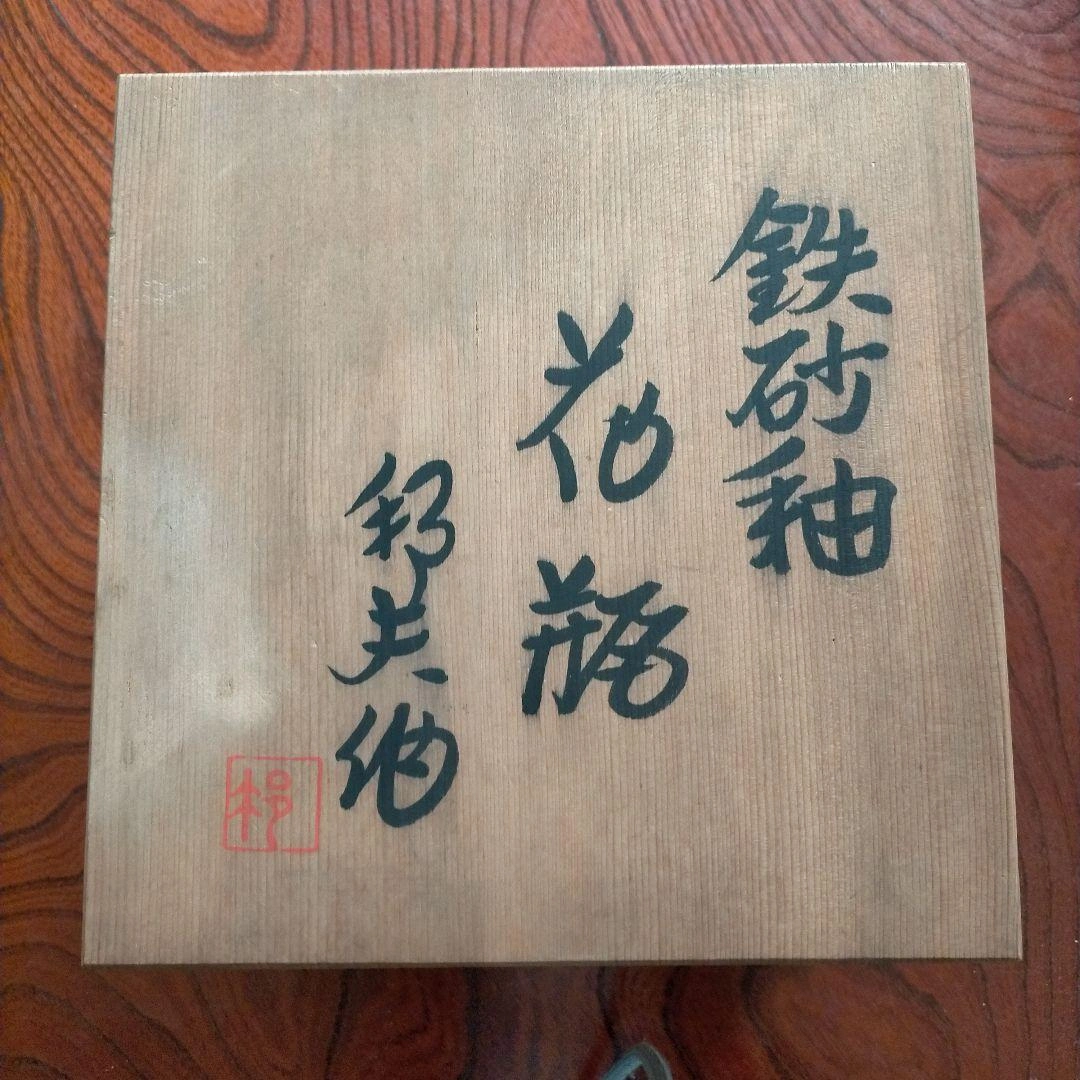 鉄砂釉
花瓶
邦夫作